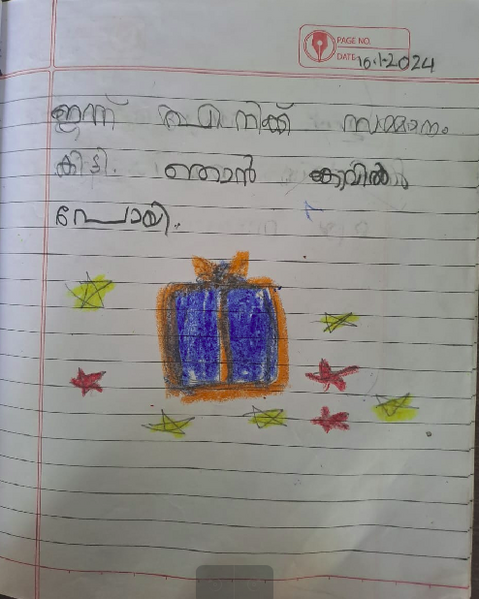 PAGE NO.
DATE: 16-1-2024
ഇന്ന് എനിക്ക് സമ്മാനം
കിട്ടി. ഞാൻ കാവിൽ
പോയി.